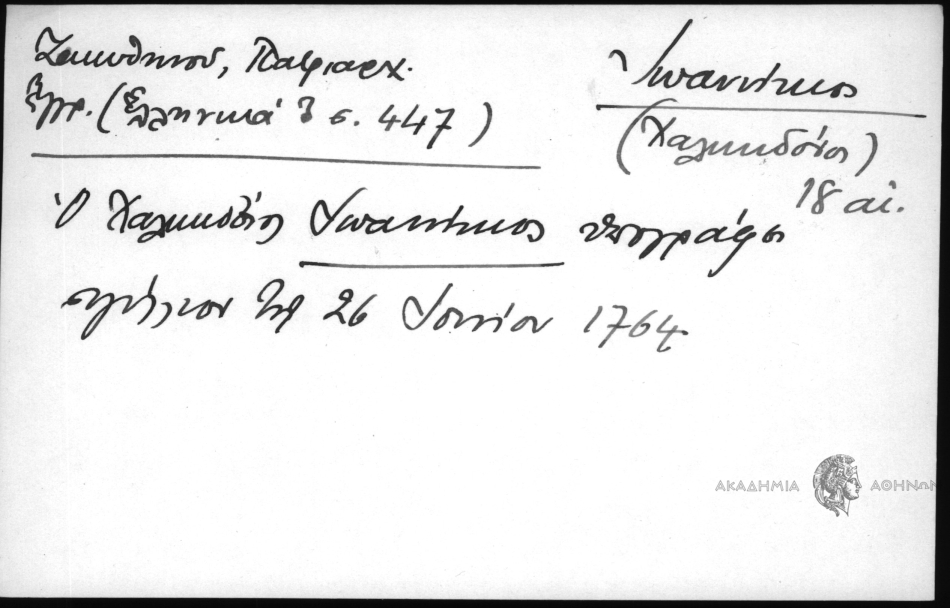 Ζακυθηνού, Πατριαρχ.
Εγγρ. (Ἑλληνικά σ. 447)
Ἰωαννίκιος
(Χαλκηδόνος)
18 αἰ.
Ὁ Χαλκηδόνος Ἰωαννίκιος ὑπογράφει
σιγίλλιον τῇ 26 Ἰουνίου 1764.
ΑΚΑΔΗΜΙΑ ΑΘΗΝΩΝ